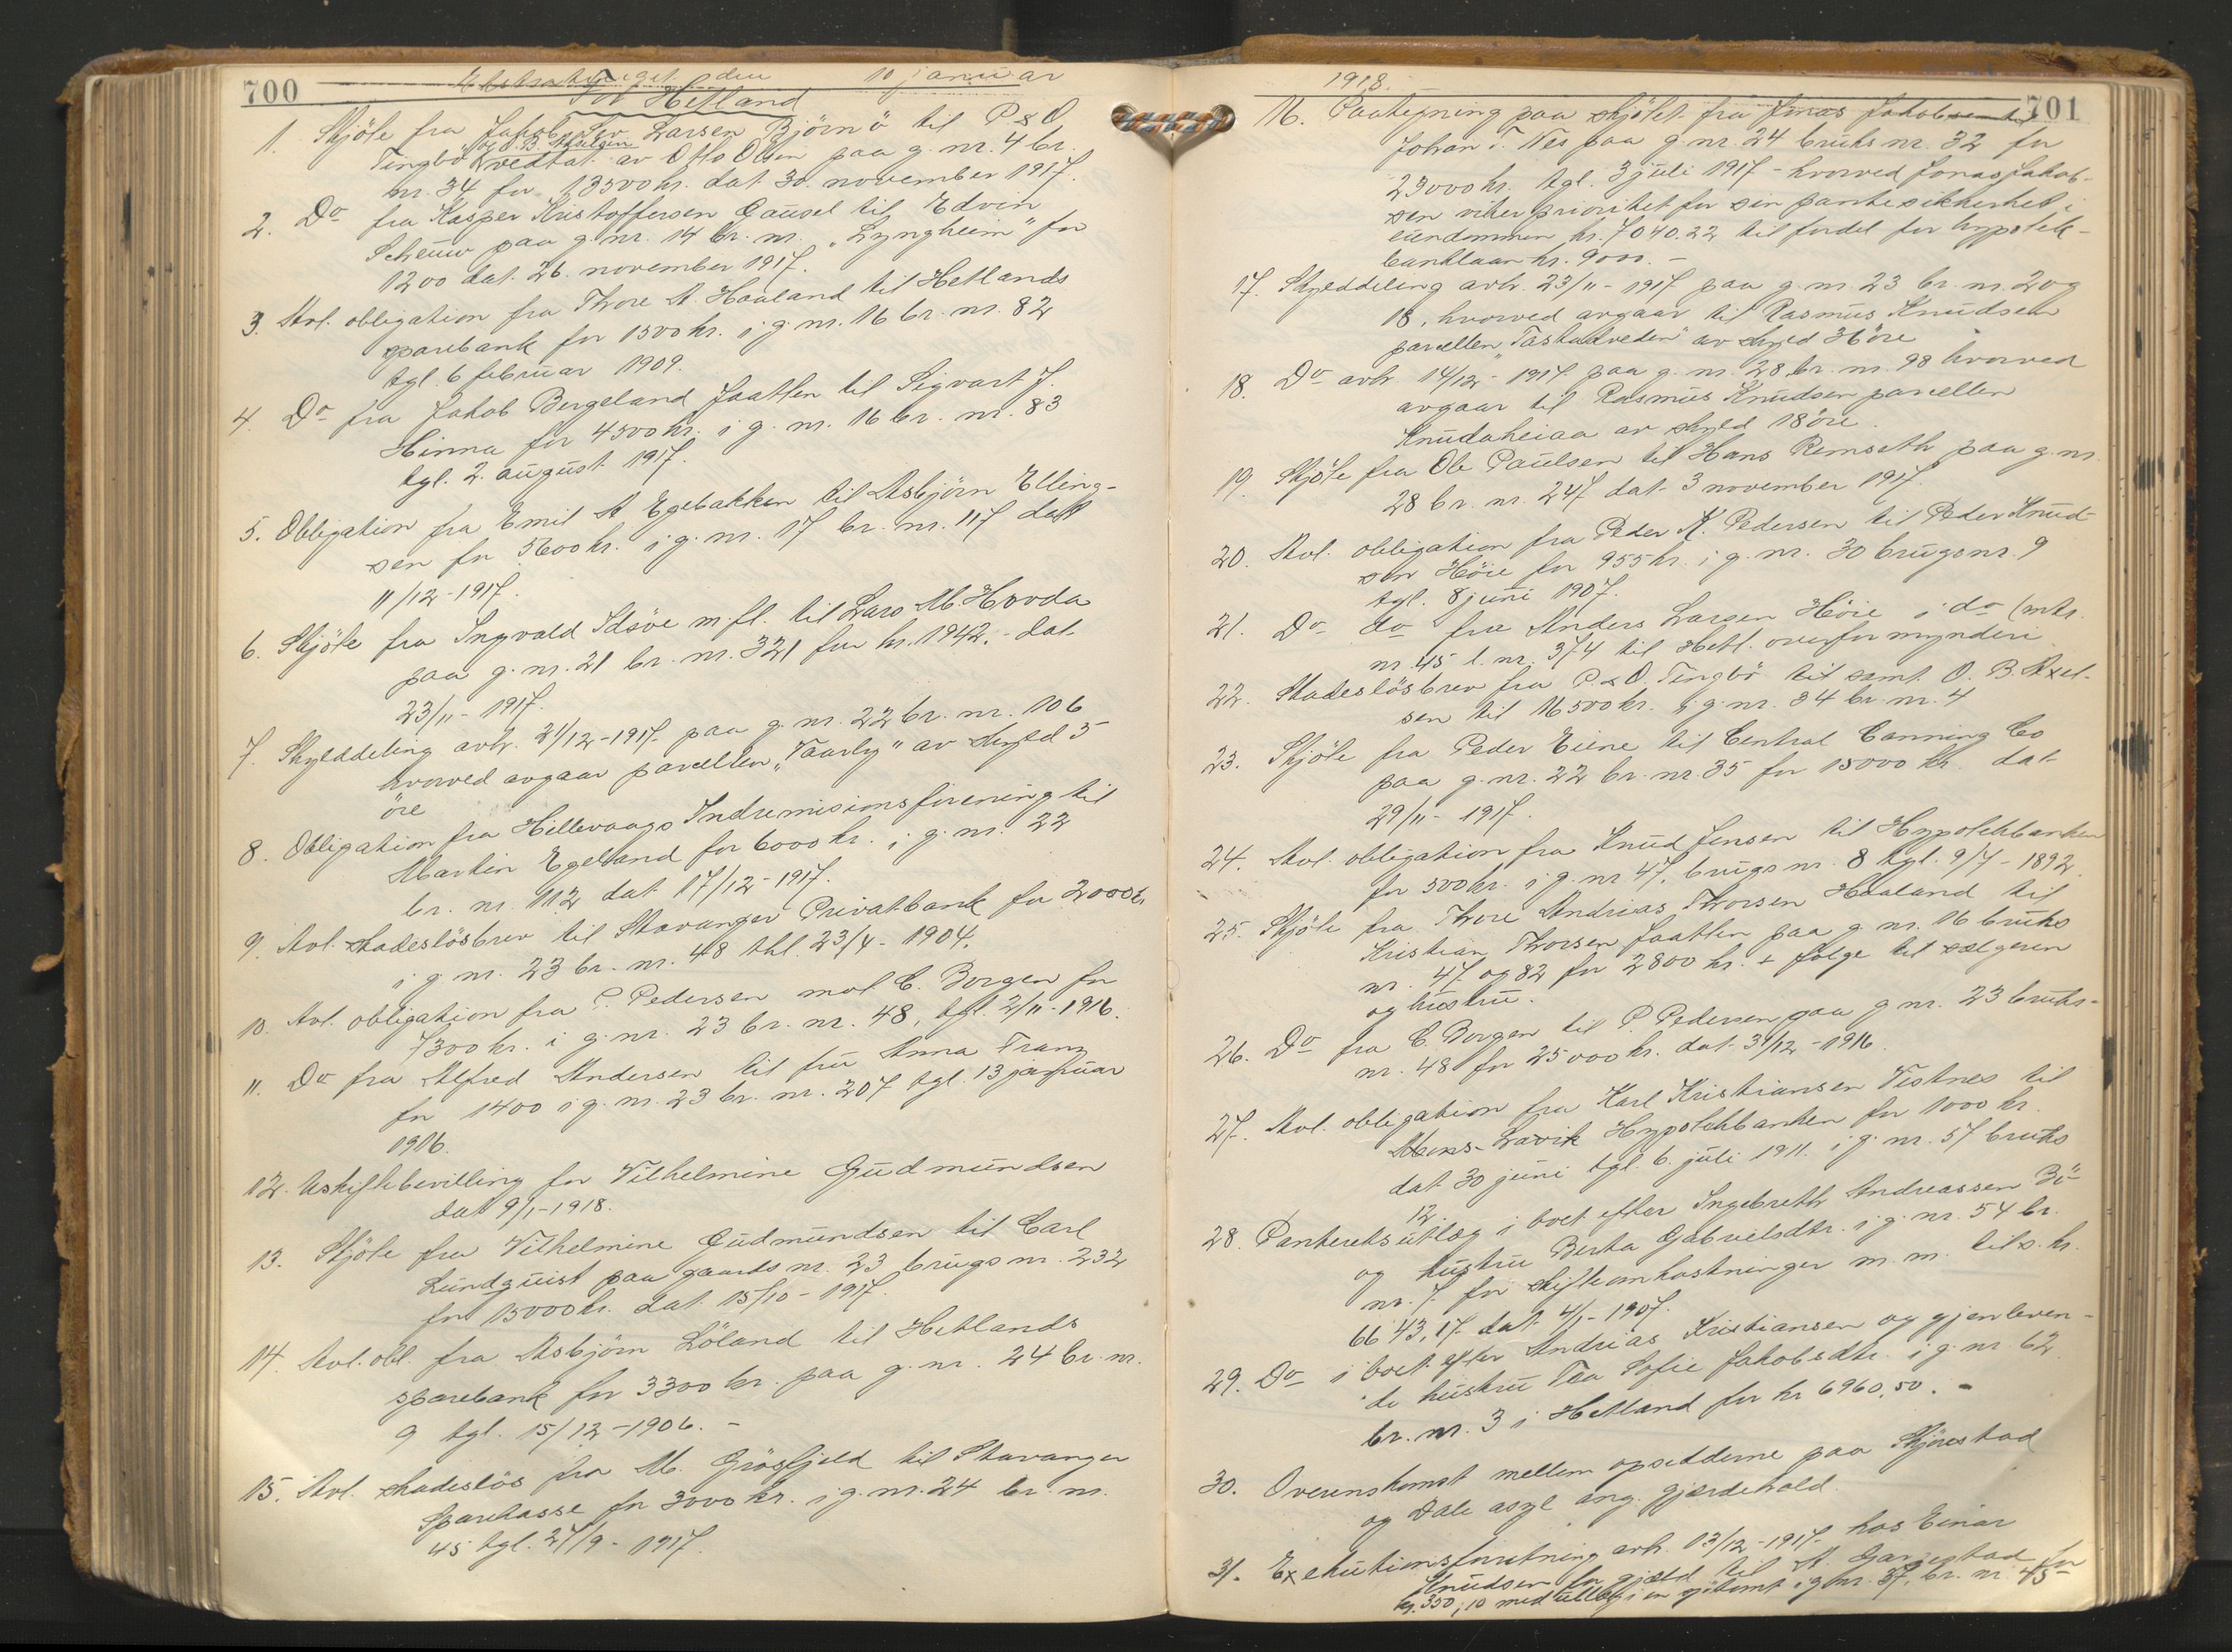 700
Ekstratinget den 10 januar
For Hetland
1. Skjöte fra Jakob Sev. Larsen Björnö til P & O.
og O. B. Axelsen
Tingbö vedtat av Otto Olsen paa g. nr. 4 br.
nr. 34 for 13500 kr. dat 30. november 1917.
2. Do fra Kasper Kristoffersen Gausel til Edvin
Scheuw paa g. nr. 14 br. nr. "Lyngheim" for
1200 dat. 26. november 1917.
3. Avl. obligation fra Thore A. Haaland til Hetlands
sparebank for 1500 kr. i g. nr. 16 br. nr. 82
tgl. 6 februar 1909.
4. Do fra Jakob Bergeland Jaatten til Sigvart J.
Hinna for 4500 kr. i g. nr. 16 br. nr. 83
tgl. 2. august 1917.
5. Obligation fra Emil A Egebakken til Asbjörn Elling-
sen for 5600 kr. i g. nr. 17 br. nr. 117 dat
11/12-1917.
6. Skjöte fra Ingvald Idsöe m. fl. til Lars M. Hovda
paa g. nr. 21 br. nr. 321 for kr. 1942.- dat
23/11-1917.
7. Skylddeling avh. 21/12-1917 paa g. nr. 22 br. nr. 106
hvorved avgaar parcellen "Taarly" av skyld 5
öre
8. Obligation fra Hillevaags Indremisionsforening til
Martin Egeland for 6000 kr. i g. nr. 22
br. nr. 112 dat 17/12-1917.
9. Avl. skadeslösbrev til Stavanger Privatbank for 2000 kr.
i g. nr. 23 br. nr. 48 tgl. 23/4-1904.
10. Avl. obligation fra P. Pedersen mot C. Borgen for
7300 kr. i g. nr. 23 br. nr. 48, tgl. 2/11-1916.
11. Do fra Alfred Andersen til fru Anna Tranz
for 1400 i g. nr. 23 br. nr. 207 tgl. 13 januar
1916.
12. Uskiftebevilling for Vilhelmine Gudmundsen
dat 9/1-1918.
13. Skjöte fra Vilhelmine Gudmundsen til Carl
Lundquist paa gaards nr. 23 brugs nr. 232
for 15000 kr. dat 15/10-1917.
14. Avl. obl. fra Asbjörn Löland til Hetlands
sparebank for 3300 kr. paa g. nr. 24 br. nr.
9 tgl. 15/12-1906.-
15. Avl. skadeslös fra M. Grösfjeld til Stavanger
Sparekasse for 3000 kr. i g. nr. 24 br. nr.
45 tgl. 27/9-1917.
1918.
701
16. Paategning paa skjötet fra Jonas Jakobsen til
Johan T. Nes paa g. nr. 24 bruks nr. 32 for
23000 kr. tgl. 3 juli 1917 - hvorved Jonas Jakob-
sen viker prioritet for sin pantesikkerhet i
eiendommen kr. 7040.22 til fordel for hypotek-
banklaan kr. 9000.-
17. Skylddeling avh. 23/11-1917 paa g. nr. 23 br. nr. 2 og
18, hvorved avgaar til Rasmus Knudsen
parcellen "Tastadveden" av skyld 36 öre
18. Do avh 14/12-1917 paa g. nr. 28 br. nr. 98 hvorved
avgaar til Rasmus Knudsen parcellen
Knudaheiaa av skyld 18 öre.
19. Skjöte fra Ole Paulsen til Hans Remseth paa g. nr.
28 br. nr. 247 dat 3 november 1917.
20. Avl. obligation fra Peder K. Pedersen til Peder Knud-
sen Höie for 955 kr. i g. nr. 30 brugs nr. 9
tgl. 8 juni 1907.
21. Do do fra Anders Larsen Höie i do (mtr.
nr. 45 l. nr. 374 til Hetl. overformynderi
22. Skadeslösbrev fra P. & O. Tingbö til samt O. B. Axel-
sen til 16500 kr. i g. nr. 34 br. nr. 4
23. Skjöte fra Peder Eiene til Central Canning Co
paa g. nr. 22 br. nr. 35 for 15000 kr. dat
29/11-1917.
24. Avl. obligation fra Knud Jensen til Hypotekbanken
for 500 kr. i g. nr. 47, brugs nr. 8 tgl. 9/7-1892.
25. Skjöte fra Thore Andrias Thorsen Haaland til
Kristian Thorsen Jaatten paa g. nr. 16 bruks
nr. 47 og 82 for 2800 kr. + følge til sælgeren
og hustru.
26. Do fra C. Borgen til P. Pedersen paa g nr. 23 bruks-
nr. 48 for 25000 kr. dat 31/12-1916.
27. Avl. obligation fra Karl Kristiansen Vestnes til
Mons Lavik Hypotekbanken for 1000 kr.
dat 30 juni tgl. 6. juli 1911. i g. nr. 57 bruks
12.
28. Panteretsutlæg i boet efter Ingebreth Andreassen Bö
og hustru Berta Gabrielsdtr. i g. nr. 54 br.
nr. 7 for skifteomkostninger m. m. tils. kr.
6643,17 dat 4/1-1907.
29. Do i boet efter Andrias Kristiansen og gjenleven-
de hustru Tea Sofie Jakobsdtr. i g. nr. 62
br. nr. 3 i Hetland for kr 6960,50.-
30. Overenskomst mellem opsidderne paa Skjörestad
og Dale asyl ang. gjærdehold.
31. Exekutionsforretning avh. 13/12-1917 hos Einar
Knudsen for gjæld til A. Gargestad for
kr. 350,10 med utlæg i en i g nr. 37, br. nr. 45